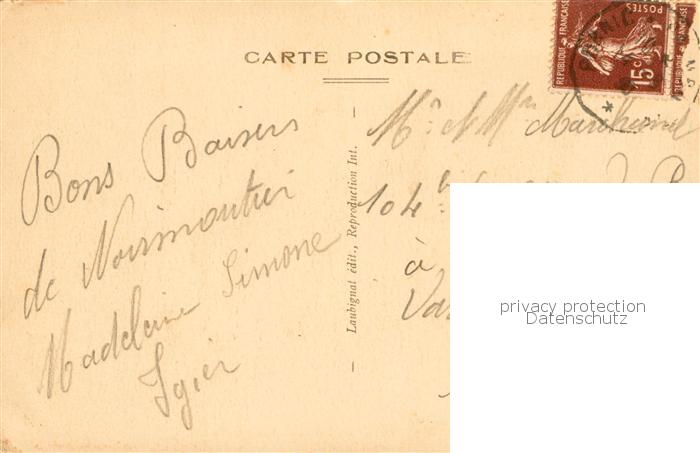 CARTE POSTALE
REPUBLIQUE FRANÇAISE
POSTES
15c
Bons Baisers
de Noirmoutier
Madeleine Simone
Igier
Laubignat édit., Reproduction Int.
Mr et Mme
104
à
privacy protection
Datenschutz